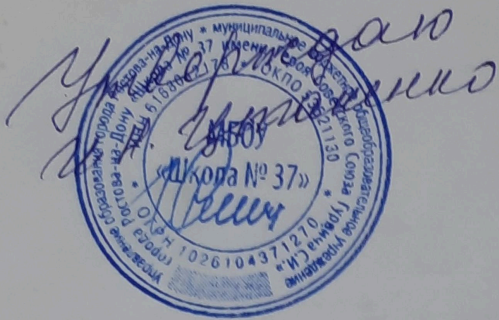 Утверждаю
Управление образования города Ростова-на-Дону * муниципальное бюджетное общеобразовательное учреждение
города Ростова-на-Дону «Школа № 37 имени Героя Советского Союза Гурвенча С.И.»
ОКПО
ОГРН 1026104371270
МБОУ
«Школа № 37»